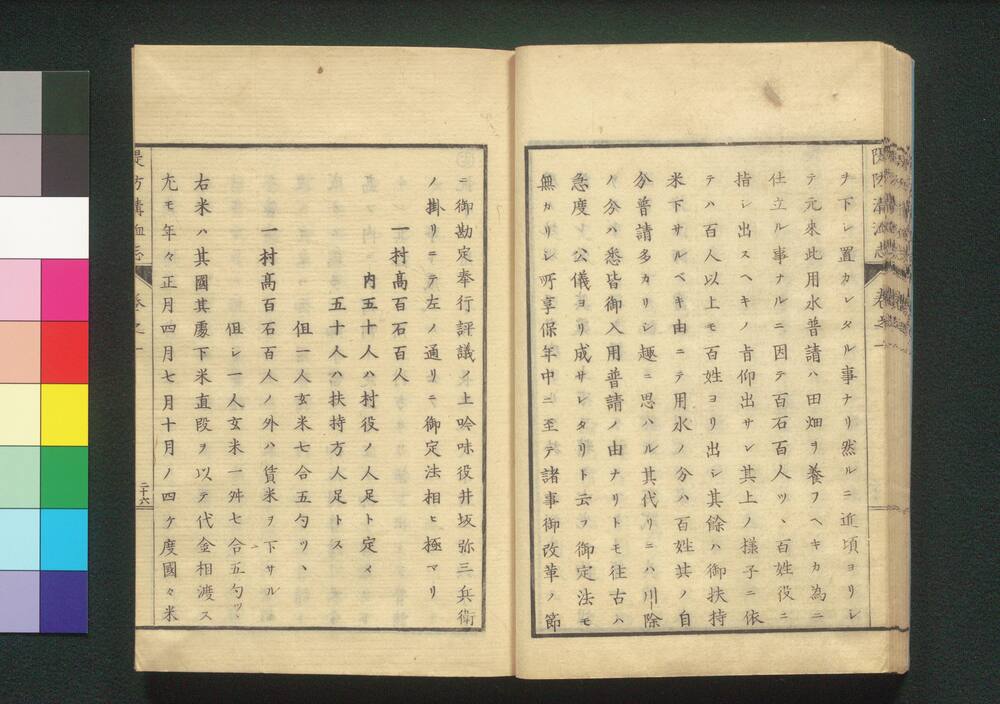 ヲ下シ置カレタル事ナリ然ルニ近頃ヨリシ
テ元來此用水普請ハ田畑ヲ養フヘキカ為ニ
仕立ル事ナルニ因テ百石百人ツヽ百姓役ニ
指シ出スヘキノ旨仰出サレ其上ノ様子ニ依
テハ百人以上モ百姓ヨリ出シ其餘ハ御扶持
米下サルベキ由ニテ用水ノ分ハ百姓其ノ自
分普請多カリシ趣ニ思ハル其代リニハ川除
ノ分ハ悉皆御入用普請ノ由ナリトモ往古ハ
急度シ公儀ヨリ成サレタリト云フ御定法モ
無カリシ所享保年中ニ至テ諸事御改革ノ節
ニ御勘定奉行評議ノ上吟味役井坂弥三兵衛
ノ掛リニテ左ノ通リニ御定法相ヒ極マリ
一村髙百石百人
内五十人ハ村役ノ人足ト定メ
五十人ハ扶持方人足トス
但一人玄米七合五勺ツヽ
一村髙百石百人ノ外ハ賃米ヲ下サル
但シ一人玄米一舛七合五勺ツヽ
右米ハ其國其處下米直段ヲ以テ代金相渡ス
尢モ年々正月四月七月十月ノ四ケ度國々米
堤防溝洫志
卷之一
二十六